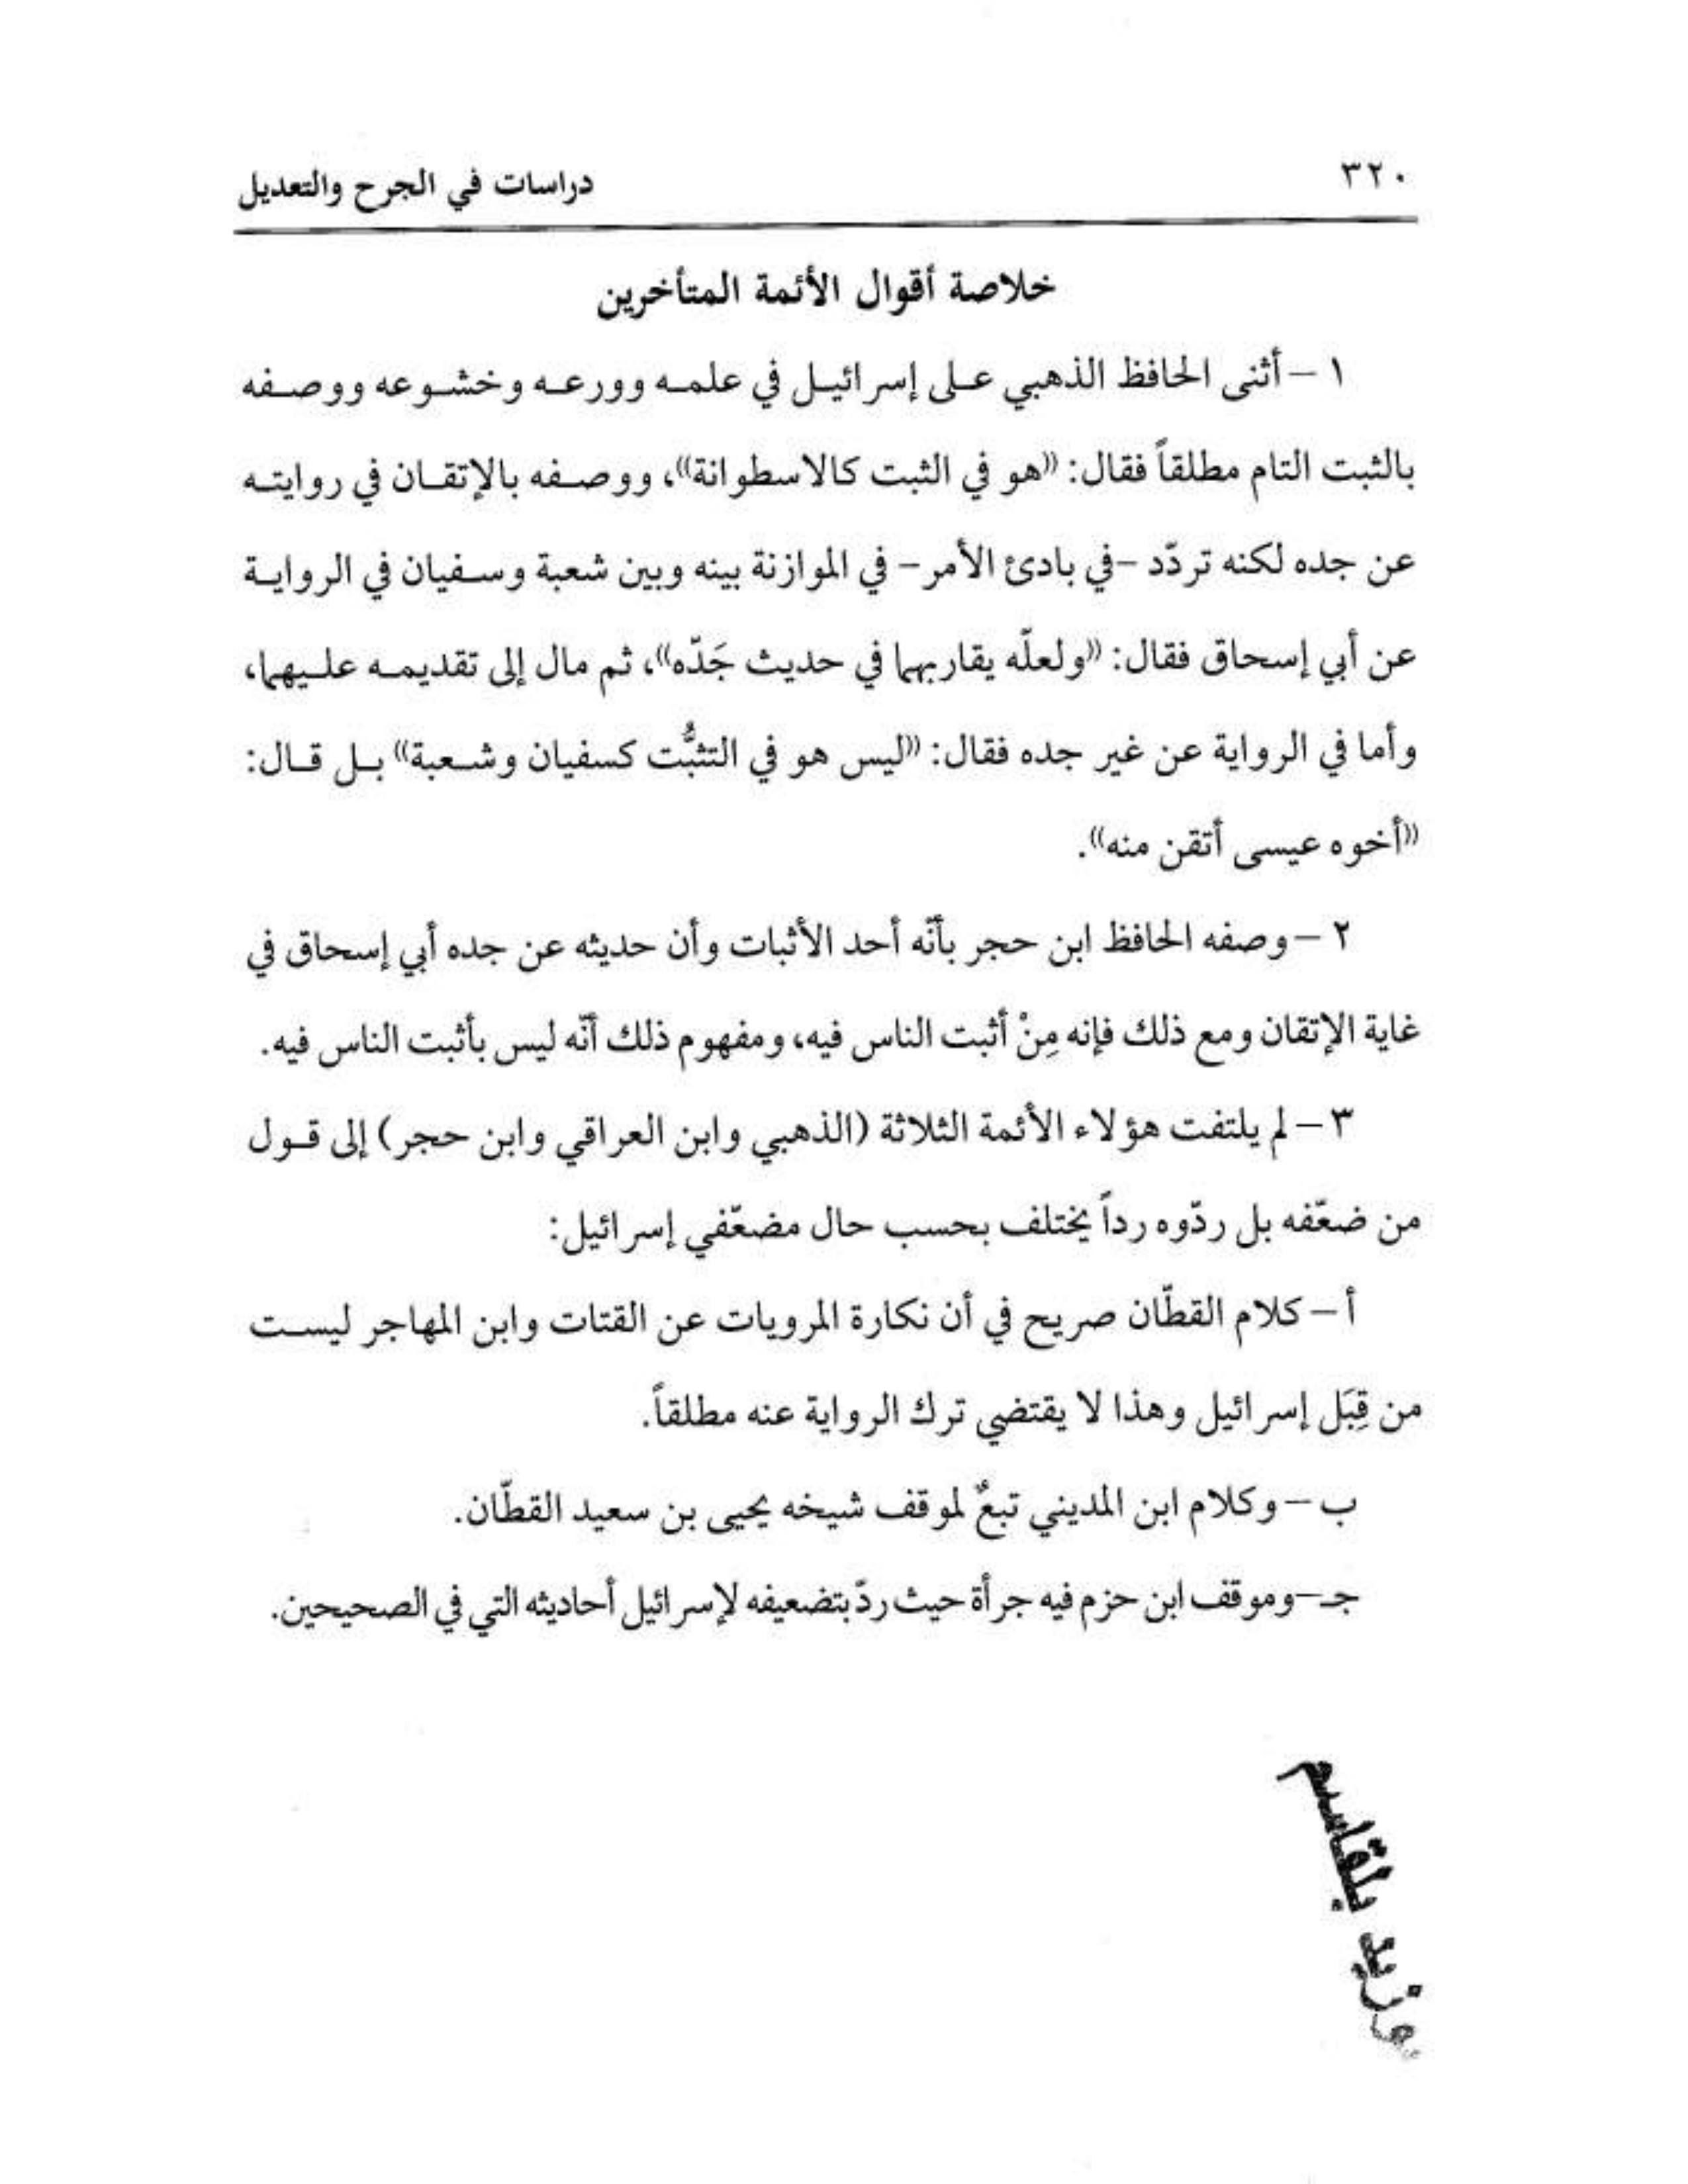 ٣٢٠
دراسات في الجرح والتعديل
خلاصة أقوال الأئمة المتأخرين
١ – أثنى الحافظ الذهبي على إسرائيل في علمه وورعه وخشوعه ووصفه
بالثبت التام مطلقاً فقال: «هو في الثبت كالاسطوانة»، ووصفه بالإتقان في روايته
عن جده لكنه تردّد –في بادئ الأمر– في الموازنة بينه وبين شعبة وسفيان في الرواية
عن أبي إسحاق فقال: «ولعلّه يقاربهما في حديث جَدّه»، ثم مال إلى تقديمه عليهما،
وأما في الرواية عن غير جده فقال: «ليس هو في التثبُّت كسفيان وشعبة» بل قال:
«أخوه عيسى أتقن منه».
٢ – وصفه الحافظ ابن حجر بأنّه أحد الأثبات وأن حديثه عن جده أبي إسحاق في
غاية الإتقان ومع ذلك فإنه مِنْ أثبت الناس فيه، ومفهوم ذلك أنّه ليس بأثبت الناس فيه.
٣ – لم يلتفت هؤلاء الأئمة الثلاثة (الذهبي وابن العراقي وابن حجر) إلى قول
من ضعّفه بل ردّوه رداً يختلف بحسب حال مضعّفي إسرائيل:
أ – كلام القطّان صريح في أن نكارة المرويات عن القتات وابن المهاجر ليست
من قِبَل إسرائيل وهذا لا يقتضي ترك الرواية عنه مطلقاً.
ب – وكلام ابن المديني تبعٌ لموقف شيخه يحيى بن سعيد القطّان.
جـ –وموقف ابن حزم فيه جرأة حيث ردّ بتضعيفه لإسرائيل أحاديثه التي في الصحيحين.
بلقاسم